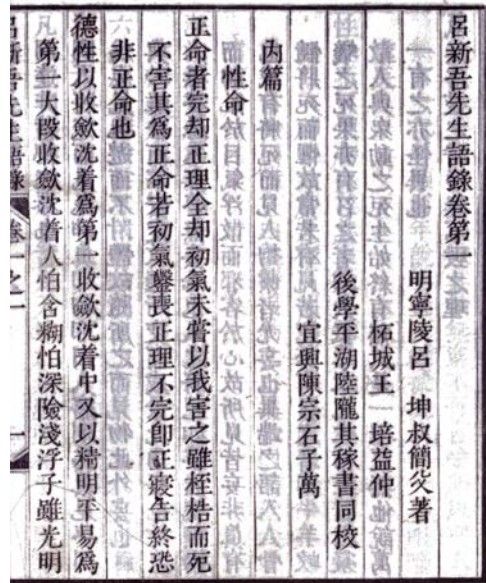 呂新吾先生語錄卷第一
明寧陵呂　坤叔簡父著
柘城王　培益仲
後學平湖陸隴其稼書同校
宜興陳宗石子萬
內篇
性命
正命者完却正理全却初氣未嘗以我害之雖桎梏而死
不害其爲正命若初氣鑿喪正理不完卽正寢告終恐
非正命也
德性以收歛沈着爲第一收歛沈着中又以精明平易爲
第一大段收歛沈着人怕含糊怕深險淺浮子雖光明
呂新吾先生語錄
卷之一
一